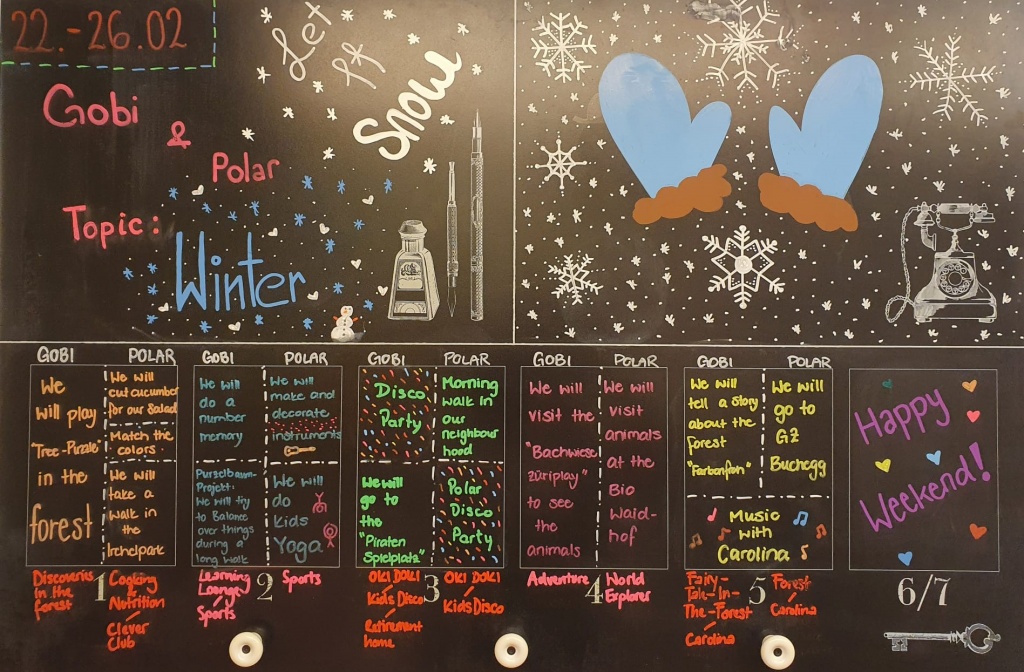 22.-26.02
Let
it
Snow
Gobi
&
Polar
Topic:
Winter
GOBI
POLAR
We
will play
"Tree-Puzzle"
in the
forest
We will
cut cucumber
for our Salad
Match the
colors.
We will
take a
walk in
the
Irchelpark
Discoveries
in the
forest
1
Cooking
&
Nutrition
Clever
Club
GOBI
POLAR
We will
do a
number
memory
Purzelbaum-
Projekt:
We will try
to Balance
over things
during a
long walk
We will
make and
decorate
instruments
We will
do
Kids
Yoga
Learning
Lounge
Sports
2
Sports
GOBI
POLAR
Disco
Party
We will
go to
the
"Piraten
Spielplatz"
Morning
walk in
our
neighbour
hood
Polar
Disco
Party
OKI DOKI
Kids Disco
Retirement
home
3
OKI DOKI
Kids Disco
GOBI
POLAR
We will
visit the
"Bachwiese
züriplay"
to see
the
animals
We will
visit
animals
at the
Bio
Waid-
hof
Adventure
4
World
Explorer
GOBI
POLAR
We will
tell a story
about the
Forest
We will
go to
GZ
Buchegg
Music
with
Carolina
Fairy-
Tale-In-
The-Forest
Carolina
5
Forest
Carolina
Happy
Weekend!
6/7